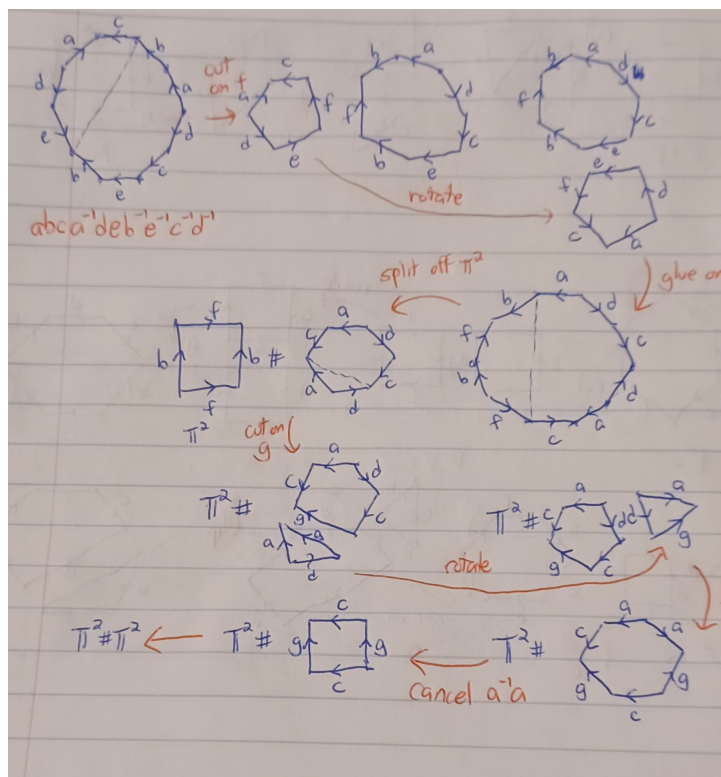 c
a b
d a
e d
b c
e
cut
on f
c
a f
d e
b a
f d
c
b e
b a d
f c
b e
rotate
e
f d
c a
abca⁻¹deb⁻¹e⁻¹c⁻¹d⁻¹
glue on
split off π²
f
b b #
f
π²
a
c d
a c
d
a
b d
f c
b d
f a
c
cut on
g
π²#
a
c d
g c
a g
d
rotate
π²#
a
c d
g c
a
d
g
π²#π²
π²#
c
g g
c
cancel a⁻¹a
π²#
a
c a
g g
c